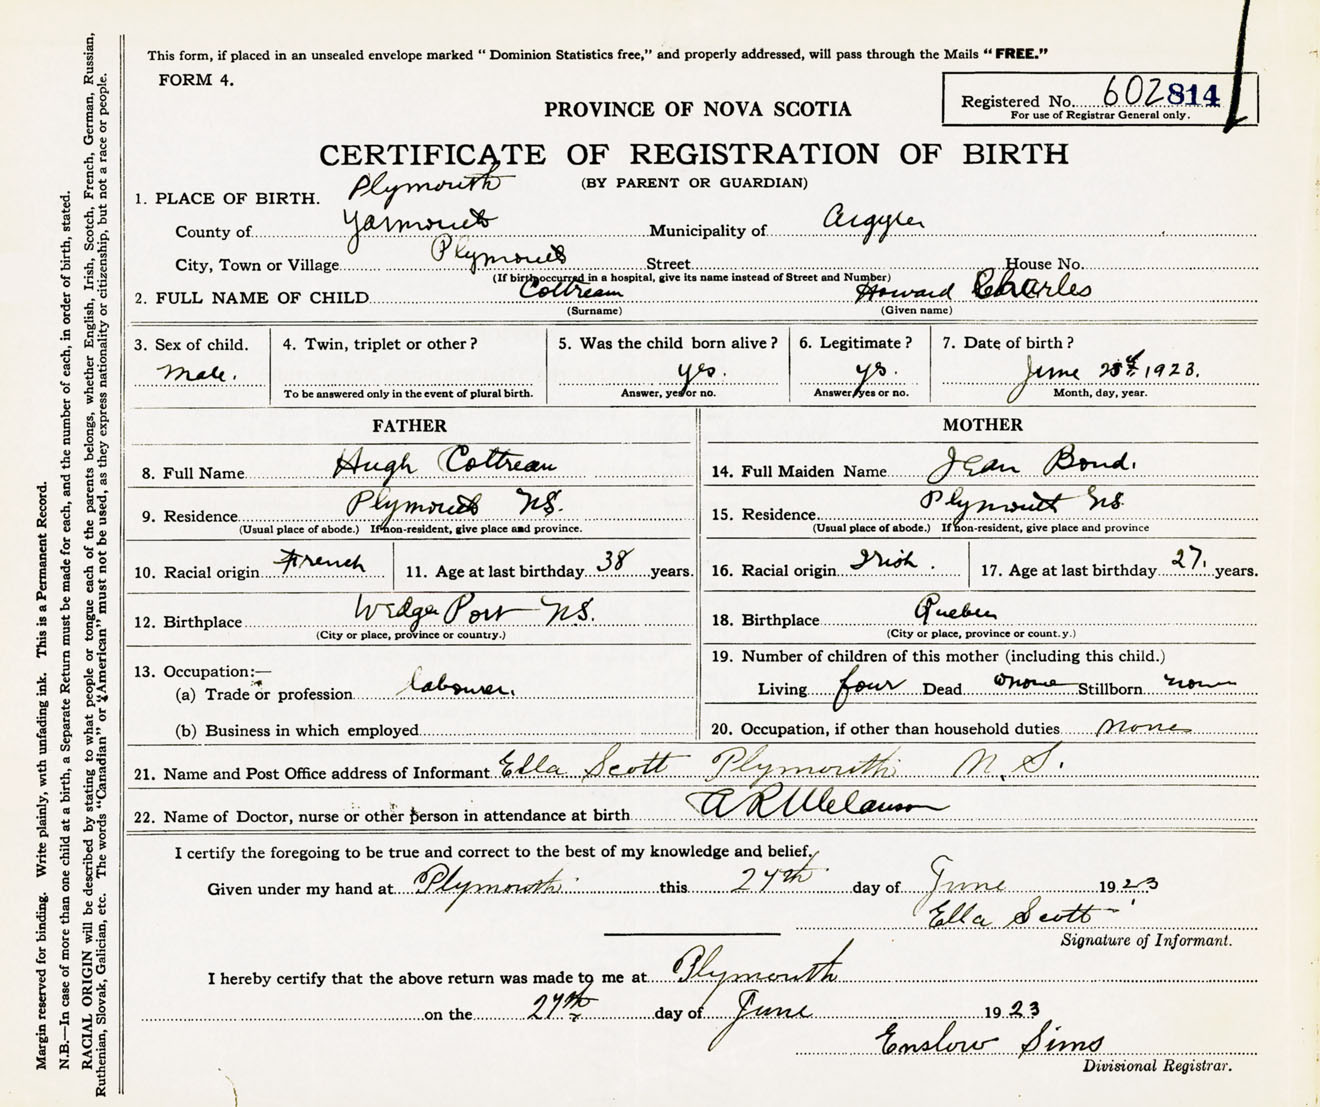 This form, if placed in an unsealed envelope marked “ Dominion Statistics free,” and properly addressed, will pass through the Mails “ FREE.”
FORM 4.
Registered No. 602814
For use of Registrar General only.
PROVINCE OF NOVA SCOTIA
CERTIFICATE OF REGISTRATION OF BIRTH
(BY PARENT OR GUARDIAN)
1. PLACE OF BIRTH. Plymouth
County of Yarmouth Municipality of Argyle
City, Town or Village Plymouth Street House No.
(If birth occurred in a hospital, give its name instead of Street and Number)
2. FULL NAME OF CHILD Cottreau Howard Charles
(Surname) (Given name)
3. Sex of child. 4. Twin, triplet or other ? 5. Was the child born alive ? 6. Legitimate ? 7. Date of birth ?
Male. yes. yes. June 1923.
To be answered only in the event of plural birth. Answer, yes or no. Answer, yes or no. Month, day, year.
FATHER MOTHER
8. Full Name Hugh Cottreau 14. Full Maiden Name Jean Bond.
9. Residence Plymouth NS. 15. Residence Plymouth NS.
(Usual place of abode.) If non-resident, give place and province. (Usual place of abode.) If non-resident, give place and province
10. Racial origin French 11. Age at last birthday 38 years. 16. Racial origin Irish . 17. Age at last birthday 27. years.
12. Birthplace Wedge Port NS. 18. Birthplace Quebec
(City or place, province or country.) (City or place, province or count.y.)
13. Occupation:— 19. Number of children of this mother (including this child.)
(a) Trade or profession labourer. Living four Dead none Stillborn none
(b) Business in which employed 20. Occupation, if other than household duties none
21. Name and Post Office address of Informant Ella Scott Plymouth N. S.
22. Name of Doctor, nurse or other person in attendance at birth A R Melanson
I certify the foregoing to be true and correct to the best of my knowledge and belief.
Given under my hand at Plymouth this 27th day of June 1923
Ella Scott
Signature of Informant.
I hereby certify that the above return was made to me at Plymouth
on the 27th day of June 1923
Enslow Sims
Divisional Registrar.
Margin reserved for binding. Write plainly, with unfading ink. This is a Permanent Record.
N.B.—In case of more than one child at a birth, a Separate Return must be made for each, and the number of each, in order of birth, stated.
RACIAL ORIGIN will be described by stating to what people or tongue each of the parents belongs, whether English, Irish, Scotch, French, German, Russian,
Ruthenian, Slovak, Galician, etc. The words “Canadian” or “American” must not be used, as they express nationality or citizenship, but not a race or people.